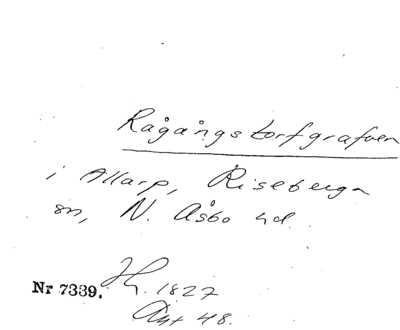 Rågångstorfgrafven
i Allarp, Riseberga
sn, N. Åsbo hd.
Nr 7339. Hg. 1827
Akt 48.